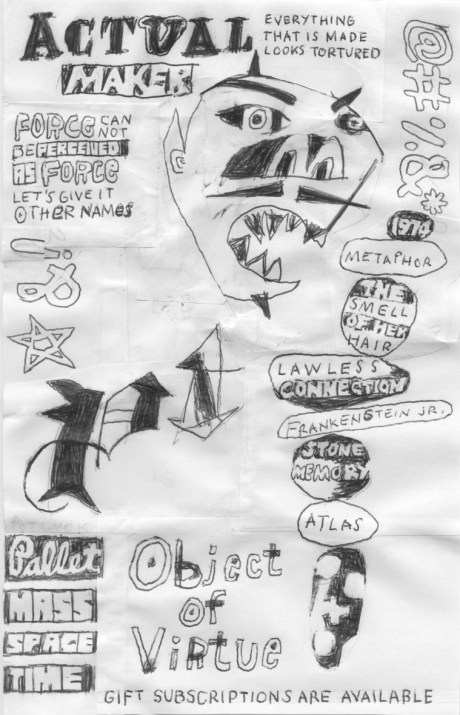 ACTUAL
MAKER
EVERYTHING
THAT IS MADE
LOOKS TORTURED
@#%&*
FORCE CAN
NOT
BE PERCEIVED
AS FORCE
LET'S GIVE IT
OTHER NAMES
1974
METAPHOR
THE
SMELL
OF HER
HAIR
LAWLESS
CONNECTION
FRANKENSTEIN JR.
STONE
MEMORY
ATLAS
Pallet
MASS
SPACE
TIME
Object
of
Virtue
GIFT SUBSCRIPTIONS ARE AVAILABLE